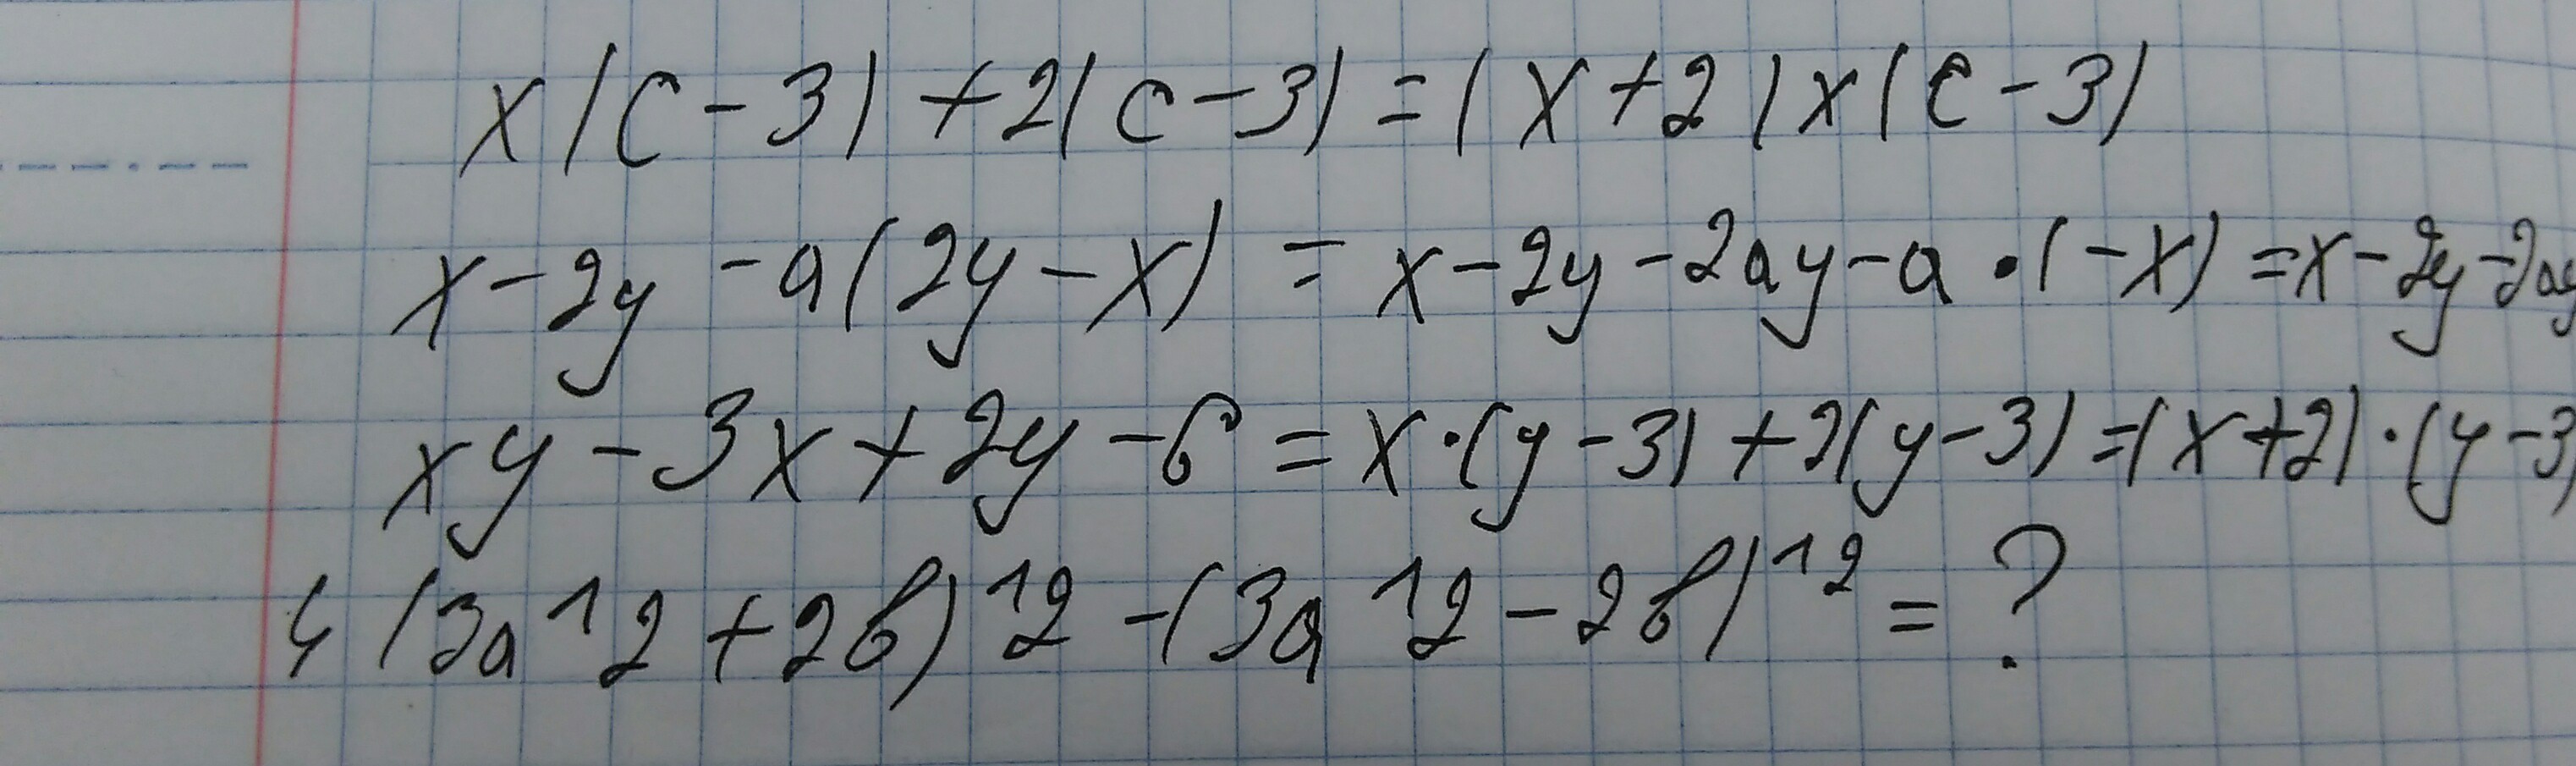 x(c-3)+2(c-3)=(x+2)x(c-3)
x-2y-a(2y-x)=x-2y-2ay-a•(-x)=x-2y-2ay
xy-3x+2y-6=x·(y-3)+2(y-3)=(x+2)·(y-3)
4 (3a^2+2b)^2-(3a^2-2b)^2=?